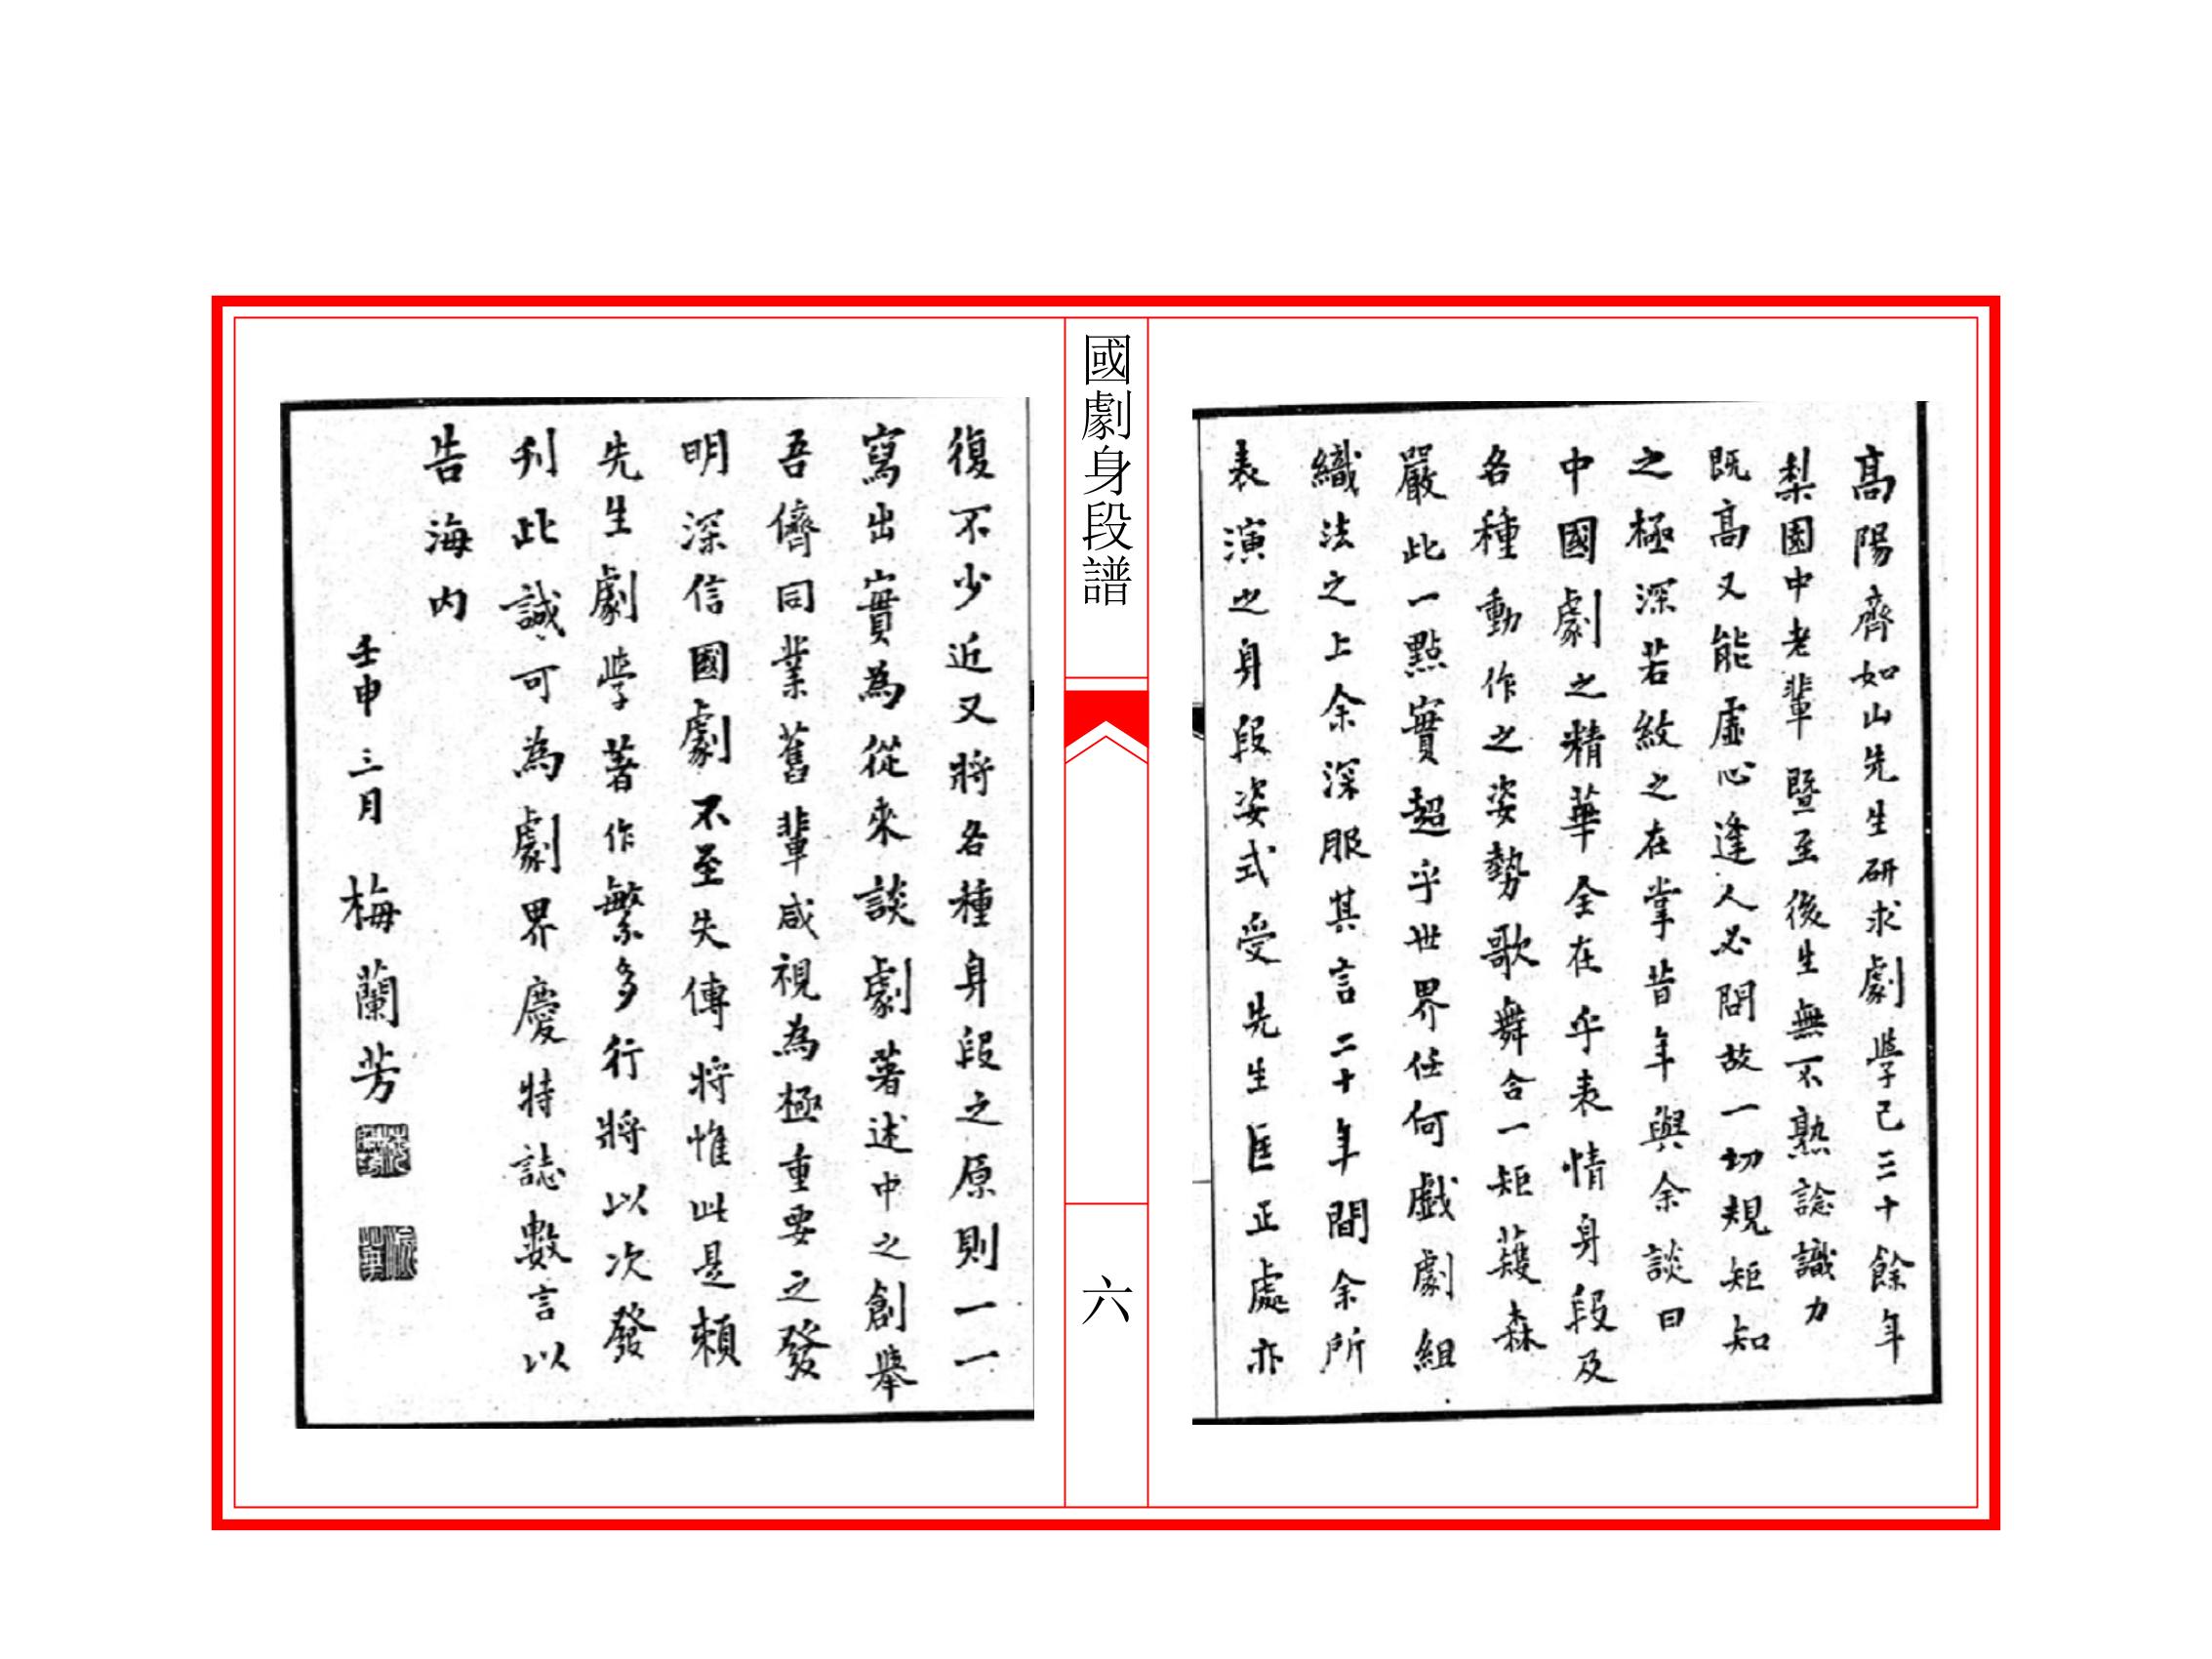 高陽齊如山先生研求劇學已三十餘年
梨園中老輩暨至後生無不熟諗識力
既高又能虛心逢人必問故一切規矩知
之極深若紋之在掌昔年與余談曰
中國劇之精華全在乎表情身段及
各種動作之姿勢歌舞合一矩蒦森
嚴此一點實超乎世界任何戲劇組
織法之上余深服其言二十年間余所
表演之身段姿式受先生匡正處亦
國劇身段譜
六
復不少近又將各種身段之原則一一
寫出實為從來談劇著述中之創舉
吾儕同業舊輩咸視為極重要之發
明深信國劇不至失傳將惟此是賴
先生劇學著作繁多行將以次發
刊此誠可為劇界慶特誌數言以
告海內
壬申三月 梅蘭芳